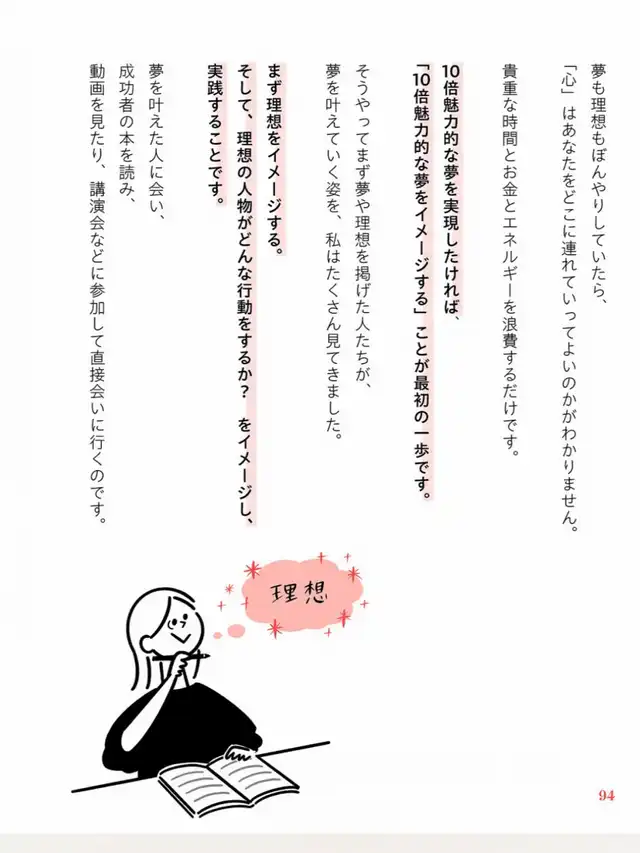 夢も理想もぼんやりしていたら、
「心」はあなたをどこに連れていってよいのかがわかりません。
貴重な時間とお金とエネルギーを浪費するだけです。
10倍魅力的な夢を実現したければ、
「10倍魅力的な夢をイメージする」ことが最初の一歩です。
そうやってまず夢や理想を掲げた人たちが、
夢を叶えていく姿を、私はたくさん見てきました。
まず理想をイメージする。
そして、理想の人物がどんな行動をするか？　をイメージし、
実践することです。
夢を叶えた人に会い、
成功者の本を読み、
動画を見たり、講演会などに参加して直接会いに行くのです。
理想
94